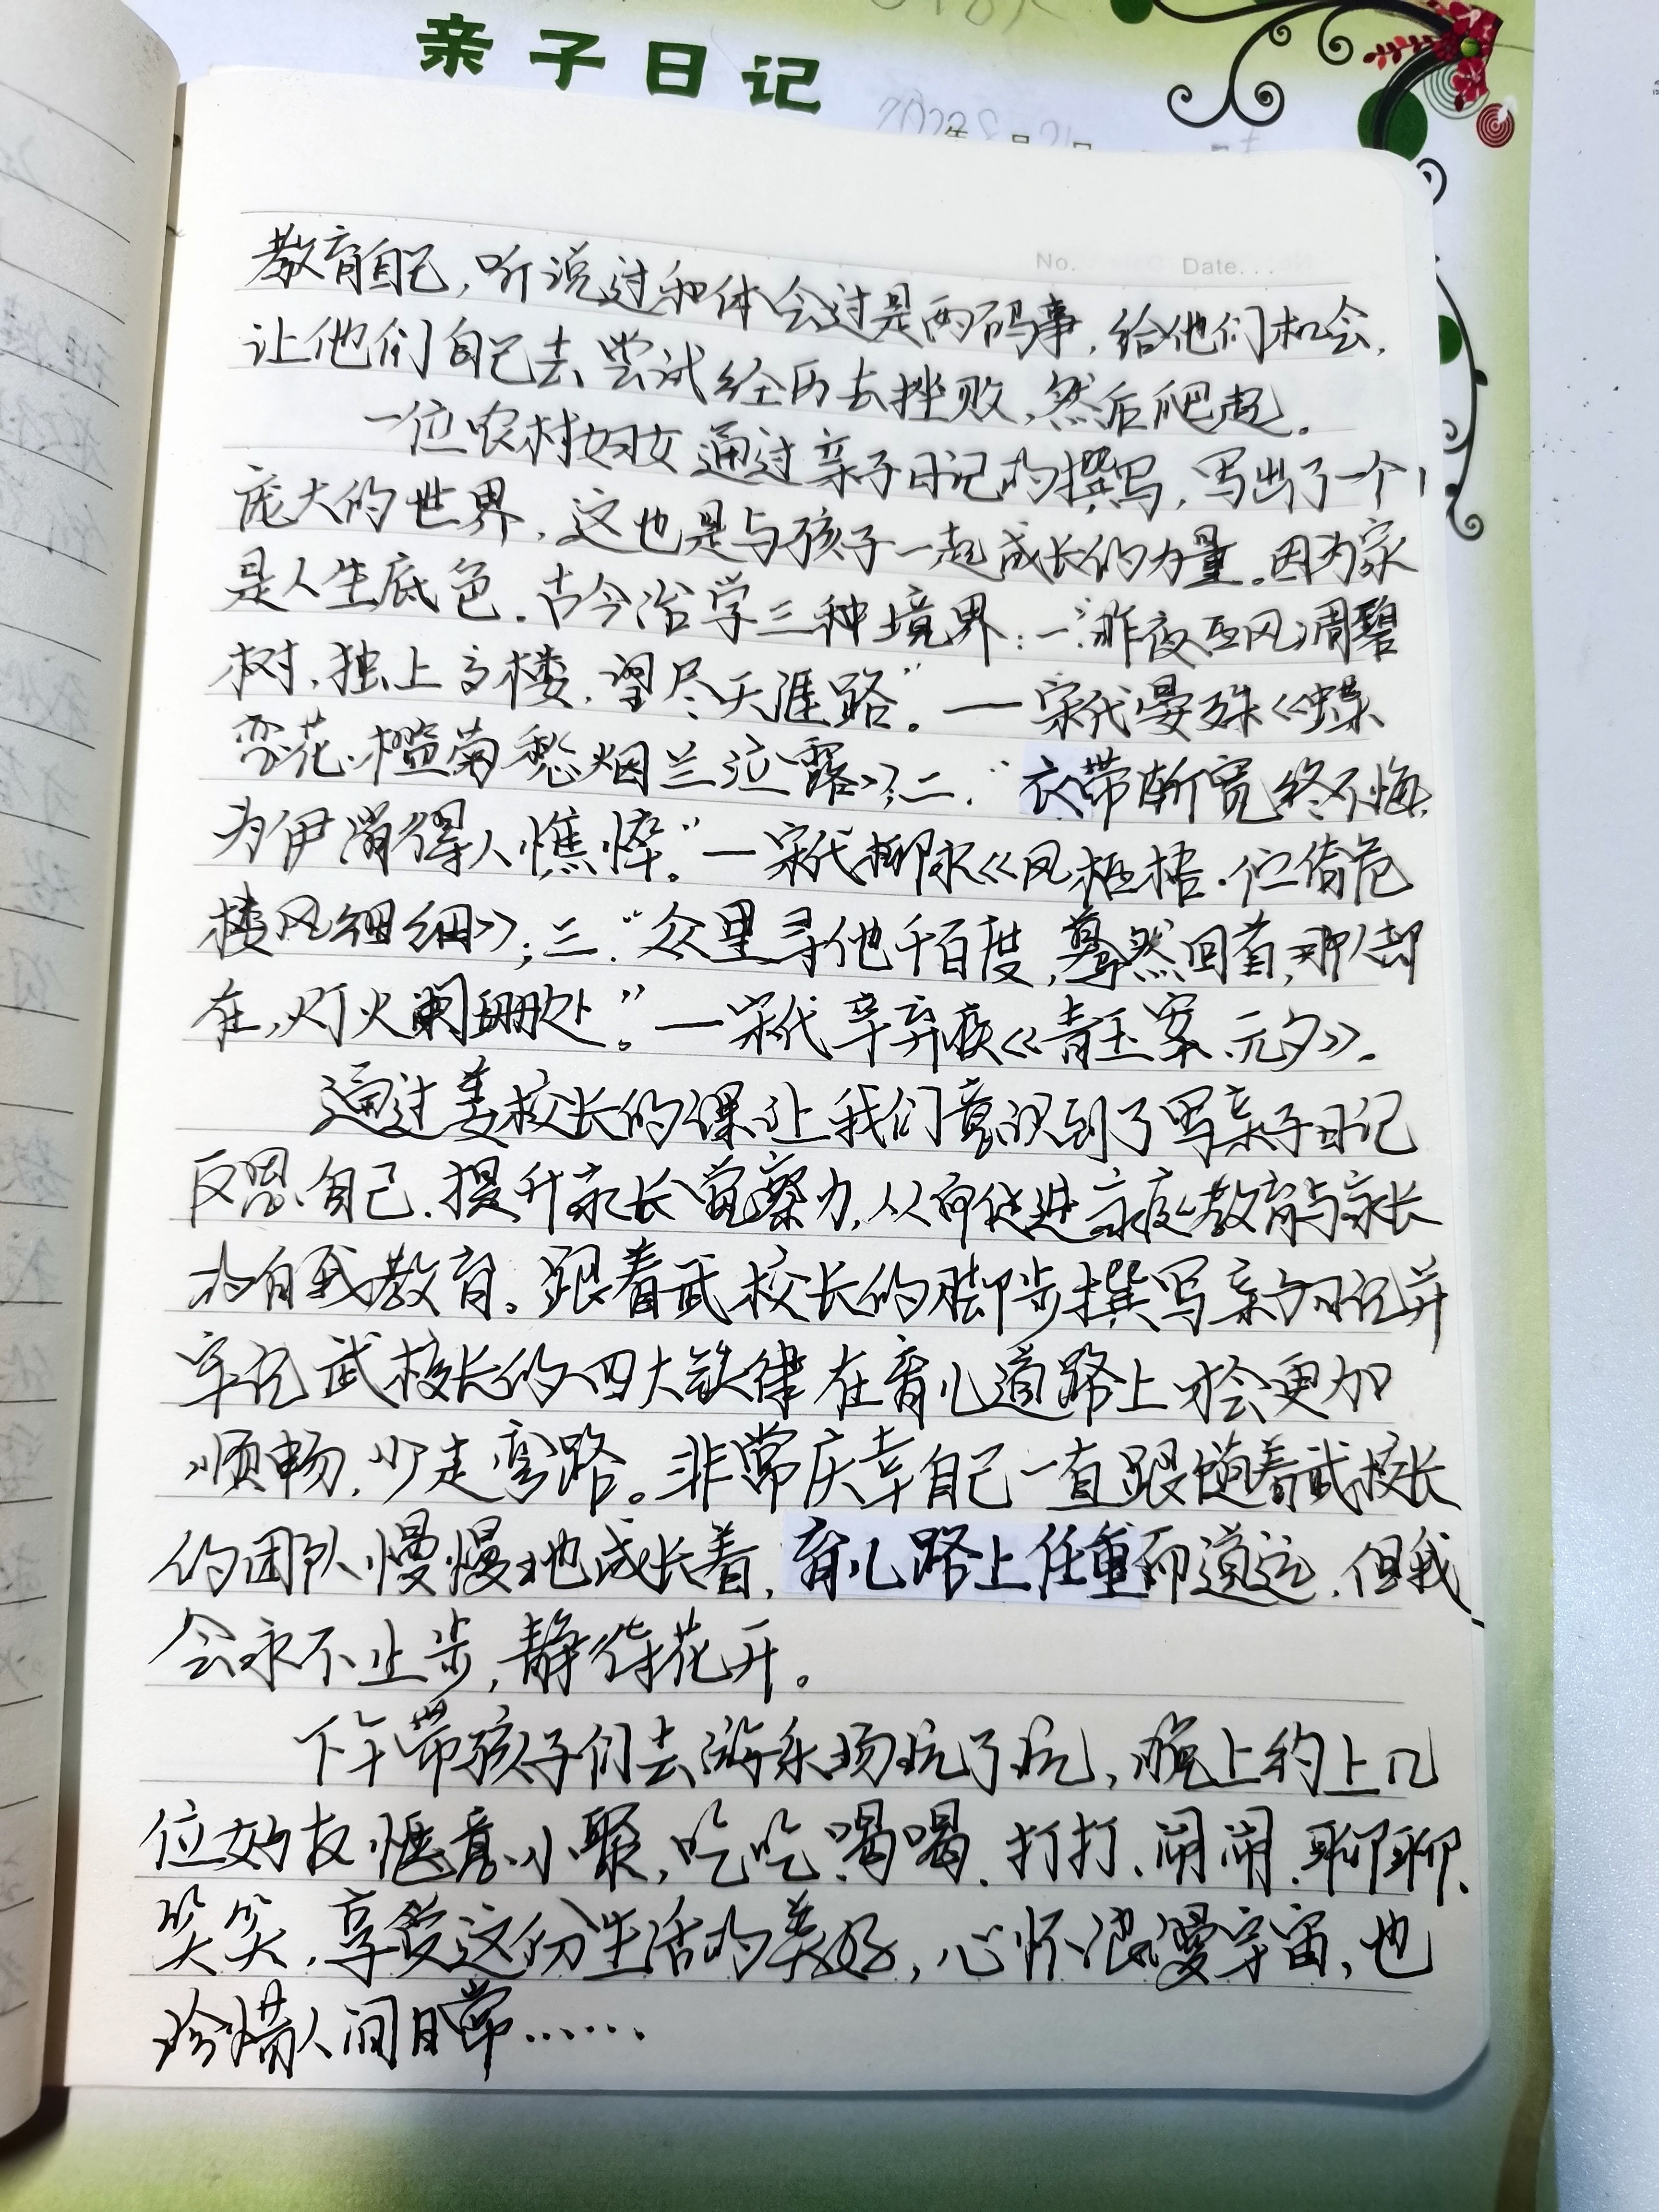 亲子日记
No. Date...
教育自己,听说过和体会过是两码事,给他们机会,
让他们自己去尝试经历去挫败,然后爬起。
一位农村妇女通过亲子日记的撰写,写出了一个
庞大的世界,这也是与孩子一起成长的力量。因为家
是人生底色。古今治学三种境界:一.“昨夜西风凋碧
树,独上高楼,望尽天涯路”。——宋代晏殊《蝶
恋花·槛菊愁烟兰泣露》;二.“衣带渐宽终不悔,
为伊消得人憔悴。”—宋代柳永《风栖梧·伫倚危
楼风细细》;三.“众里寻他千百度,蓦然回首,那人却
在,灯火阑珊处。”—宋代辛弃疾《青玉案·元夕》。
通过姜校长的课让我们意识到了写亲子日记
反思自己,提升家长觉察力,从而促进家庭教育与家长
的自我教育。跟着武校长的脚步撰写亲子日记并
牢记武校长的四大铁律在育儿道路上才会更加
顺畅,少走弯路。非常庆幸自己一直跟随着武校长
的团队慢慢地成长着,育儿路上任重而道远,但我
会永不止步,静待花开。
下午带孩子们去游乐场玩了玩,晚上约上几
位好友惬意小聚,吃吃、喝喝、打打、闹闹、聊聊、
笑笑,享受这份生活的美好,心怀浪漫宇宙,也
珍惜人间日常……